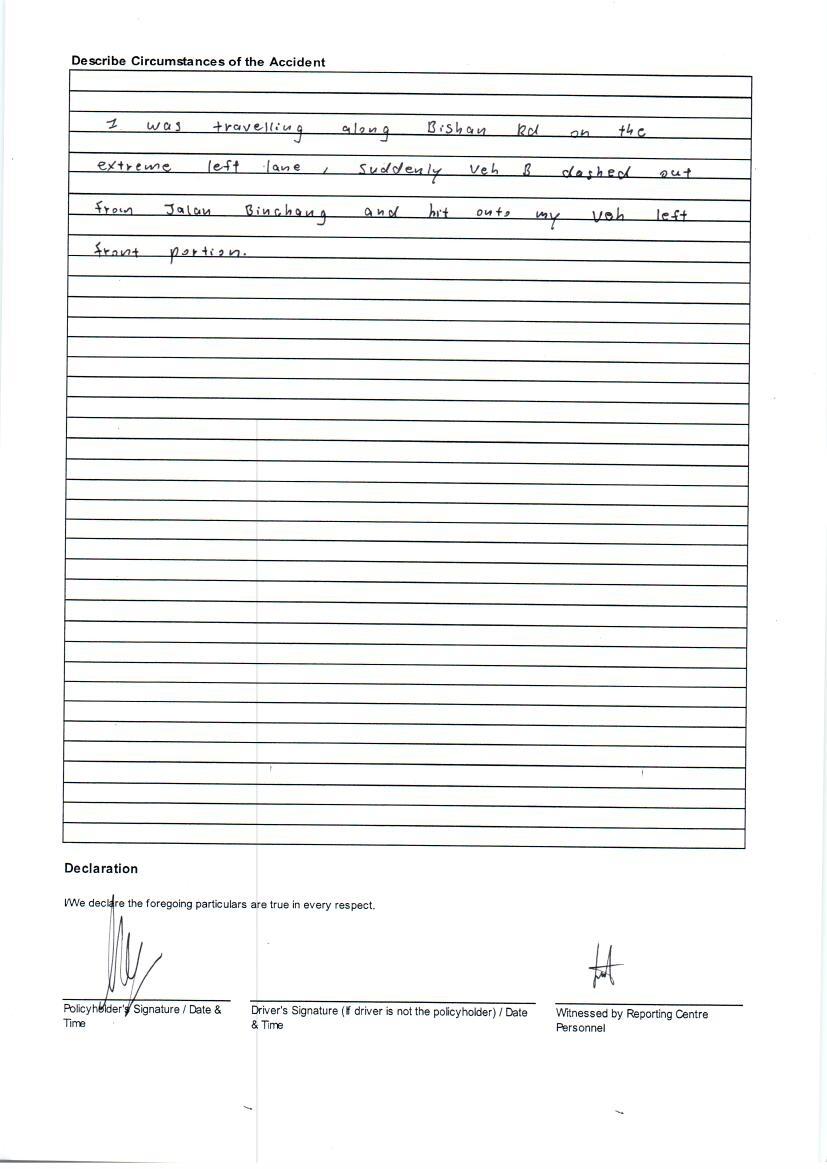 Describe Circumstances of the Accident
I was travelling along Bishan Rd on the
extreme left lane, suddenly veh B dashed out
from Jalan Binchang and hit onto my veh left
front portion.
Declaration
I/We declare the foregoing particulars are true in every respect.
Policyholder's Signature / Date &
Time
Driver's Signature (If driver is not the policyholder) / Date
& Time
Witnessed by Reporting Centre
Personnel